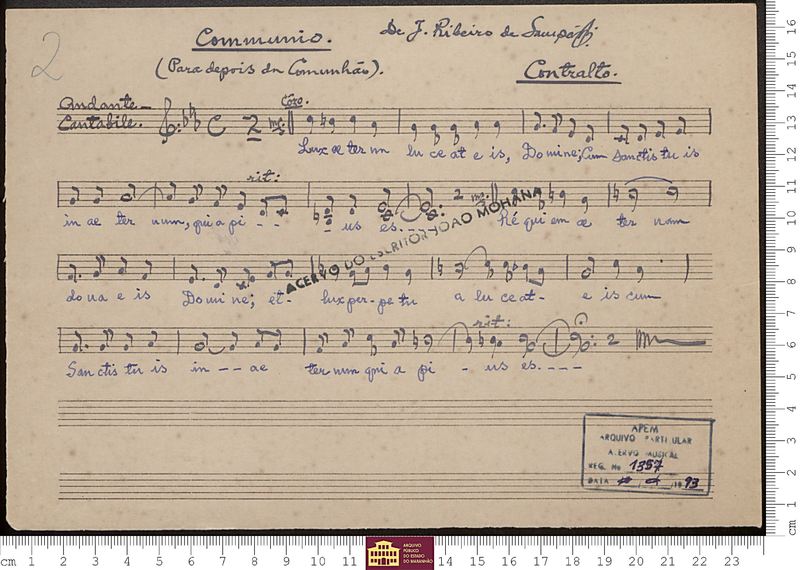 2
Communio.
De J. Ribeiro de
(Para depois da Comunhão).
Contralto.
Andante
Cantabile.
Côro.
Lux ae ter nn lu ce at e is, Do mine; Cum Sanctis tu is
rit:
in ae ter num, qui a pi - - us es. - - - - Ré qui em ae ter nam
ACERVO DO ESCRITOR JOAO MOHANA
do na e is Do mi ne; et - lux per - pe tu a lu ce at - e is cum
rit:
Sanctis tu is in - - ae ter num qui a pi - us es. - - - -
APEM
ARQUIVO PARTICULAR
ACERVO MUSICAL
REG. No 1357
DATA 93
cm 1 2 3 4 5 6 7 8 9 10 11 14 15 16 17 18 19 20 21 22 23
ARQUIVO
PÚBLICO
DO ESTADO
DO MARANHÃO
16
15
14
13
12
11
10
9
8
7
6
5
4
3
2
1
cm